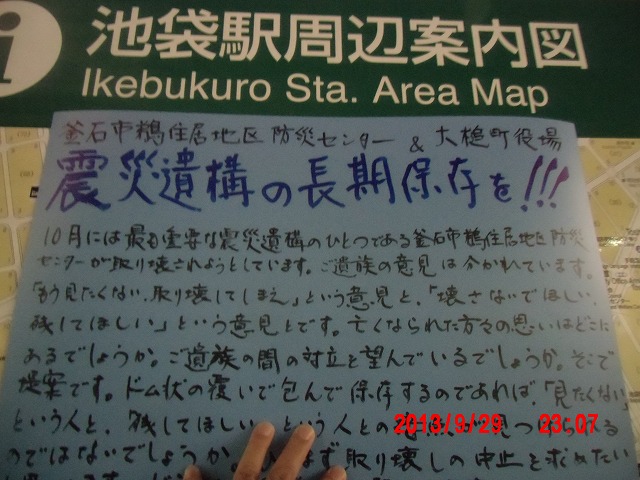 i
池袋駅周辺案内図
Ikebukuro Sta. Area Map
釜石市鵜住居地区防災センター & 大槌町役場
震災遺構の長期保存を!!!
10月には最も重要な震災遺構のひとつである釜石市鵜住居地区防災
センターが取り壊されようとしています。ご遺族の意見は分かれています。
「もう見たくない、取り壊してしまえ」という意見と、「壊さないでほしい、
残してほしい」という意見とです。亡くなられた方々の思いはどこに
あるでしょうか。ご遺族の間の対立を望んでいるでしょうか。そこで
提案です。ドーム状の覆いで包んで保存するのであれば、「見たくない」
という人と、残してほしいという人との 見つ る
のではないでしょうか。 ず取り壊しの中止を求めたい
2013/9/29 23:07